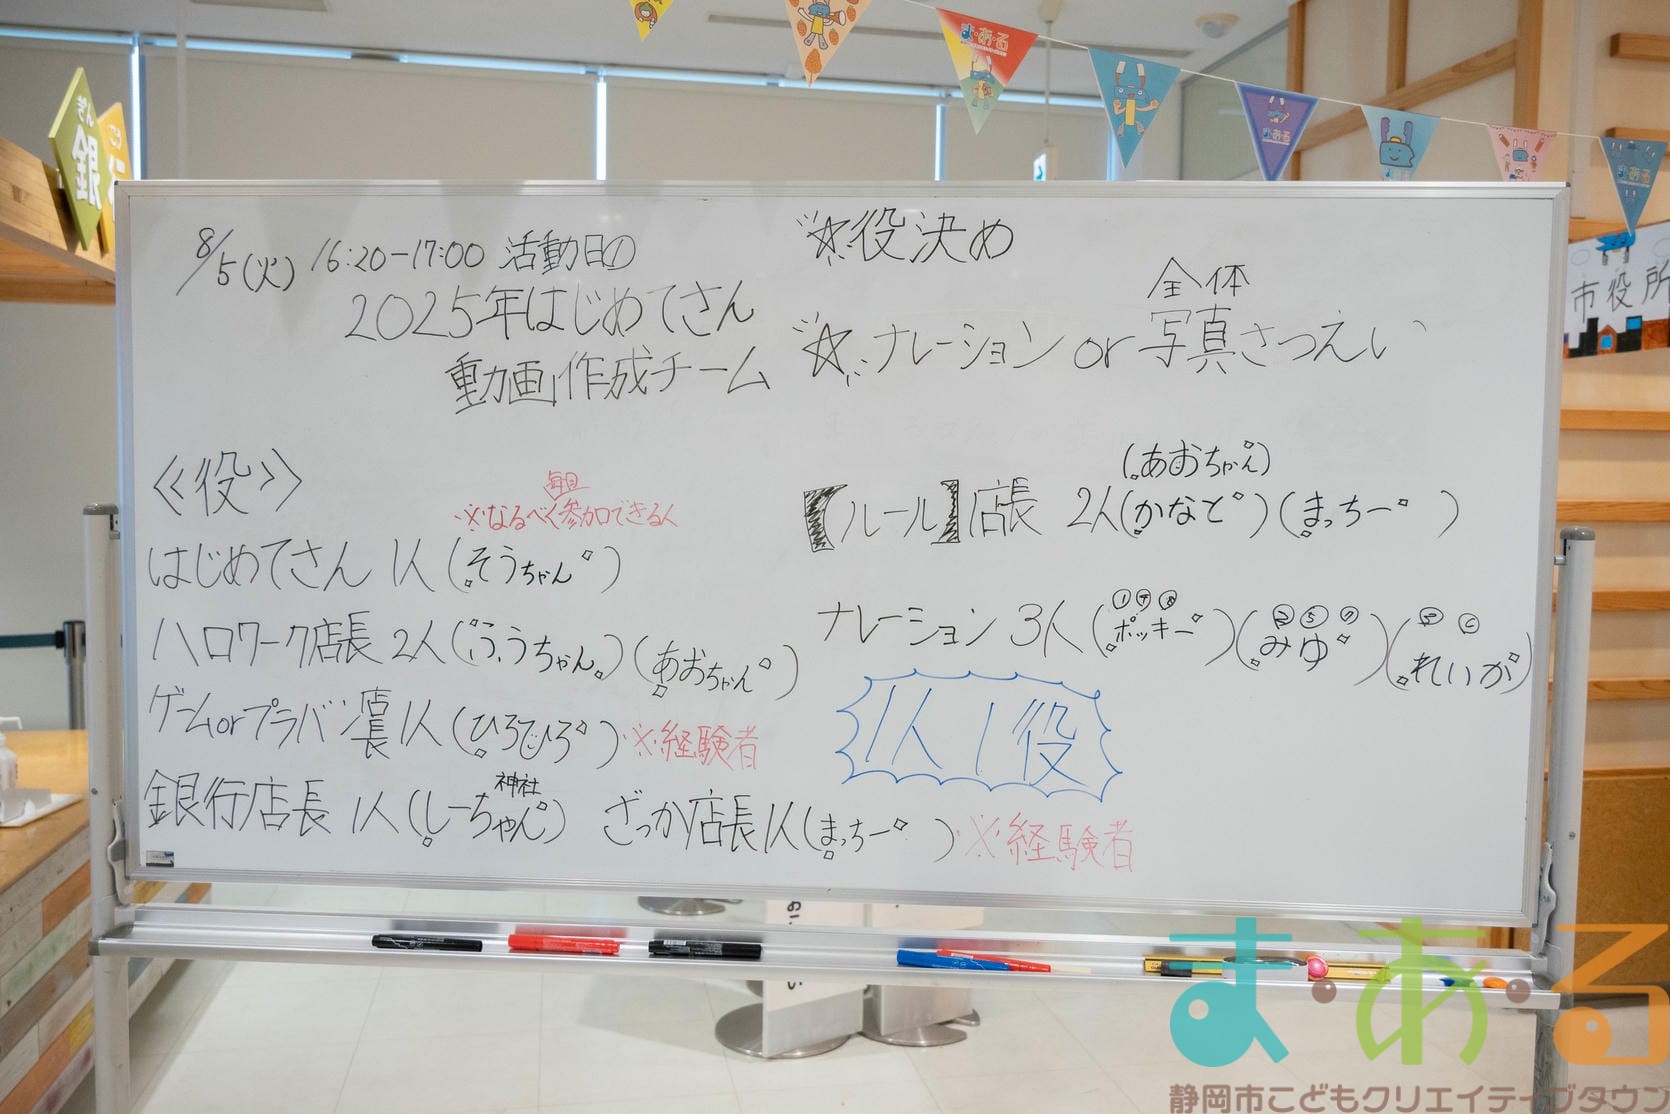 8/5(火) 16:20-17:00 活動日①
2025年はじめてさん
動画作成チーム
☆役決め
全体
☆ナレーション or 写真さつえい
《役》
毎日
※なるべく参加できる人
はじめてさん 1人(そうちゃん)
ハローワーク店長 2人(ふうちゃん)(あおちゃん)
ゲームorプラバン店長 1人(ひろひろ)※経験者
神社
銀行店長 1人(しーちゃん) ざっか店長1人(まっちー)※経験者
(あおちゃん)
【ルール】店長 2人(かなと)(まっちー)
ナレーション 3人(ポッキー)(みゆ)(れいが)
1人1役
ぎん
銀
市役所
ま・あ・る
ま・あ・る
静岡市こどもクリエイティブタウン